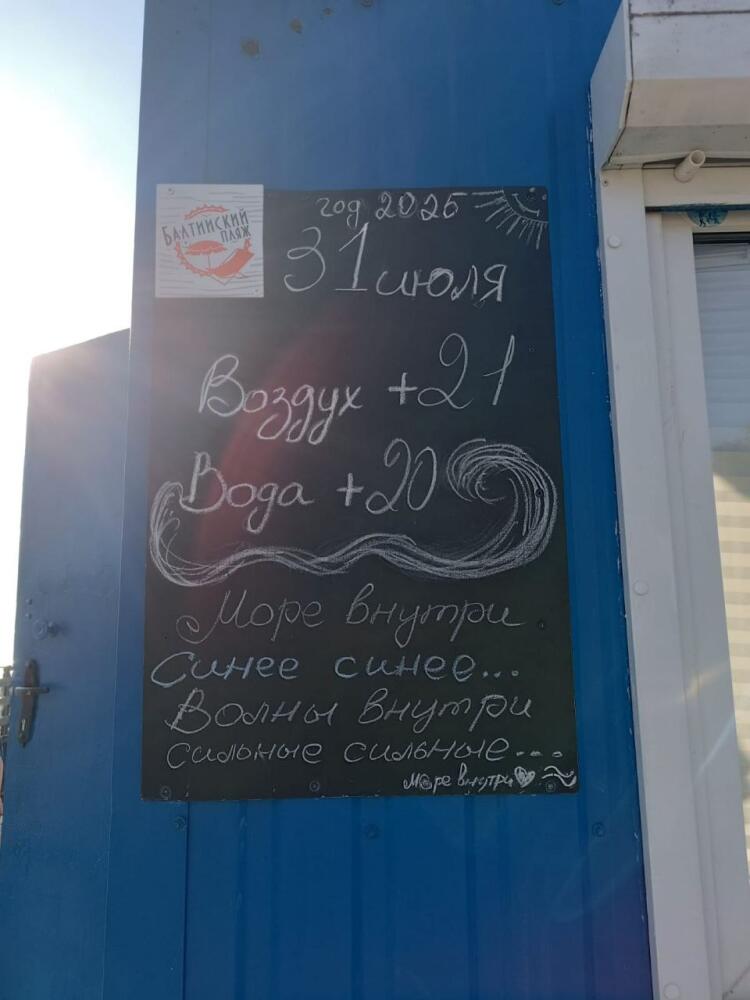 БАЛТИЙСКИЙ
ПЛЯЖ
год 2025
31 июля
Воздух +21
Вода +20
Море внутри
Синее синее...
Волны внутри
сильные сильные...
Море внутри